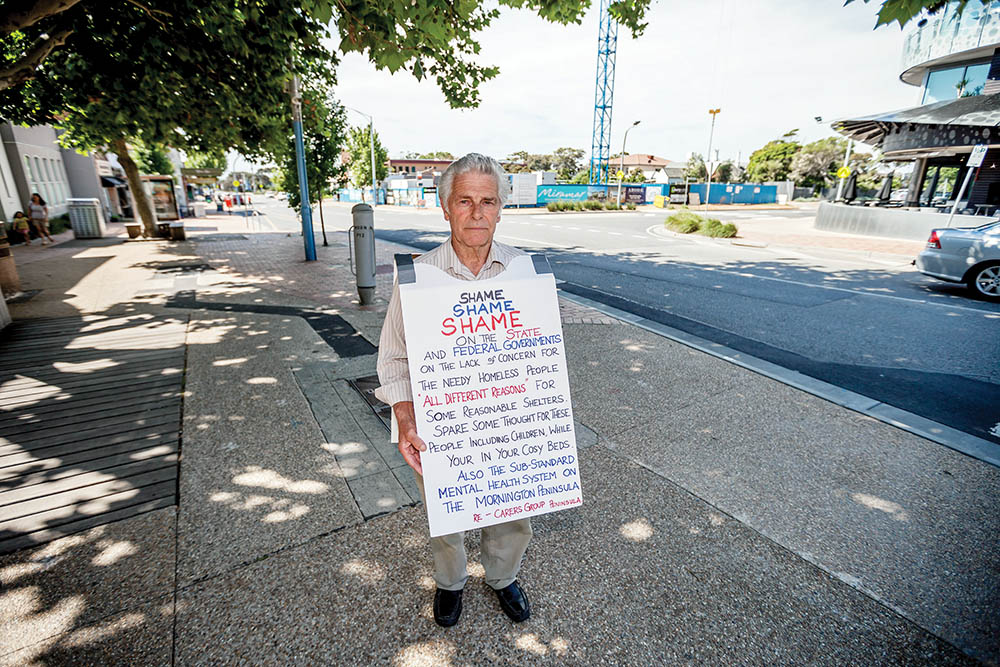 SHAME
SHAME
SHAME
ON THE STATE
AND FEDERAL GOVERNMENTS
ON THE LACK of CONCERN FOR
THE NEEDY HOMELESS PEOPLE
"ALL DIFFERENT REASONS" FOR
SOME REASONABLE SHELTERS
SPARE SOME THOUGHT FOR THESE
PEOPLE INCLUDING CHILDREN, WHILE
YOUR IN YOUR COSY BEDS.
ALSO THE SUB-STANDARD
MENTAL HEALTH SYSTEM ON
THE MORNINGTON PENINSULA
RE - CARERS GROUP PENINSULA
Miramar